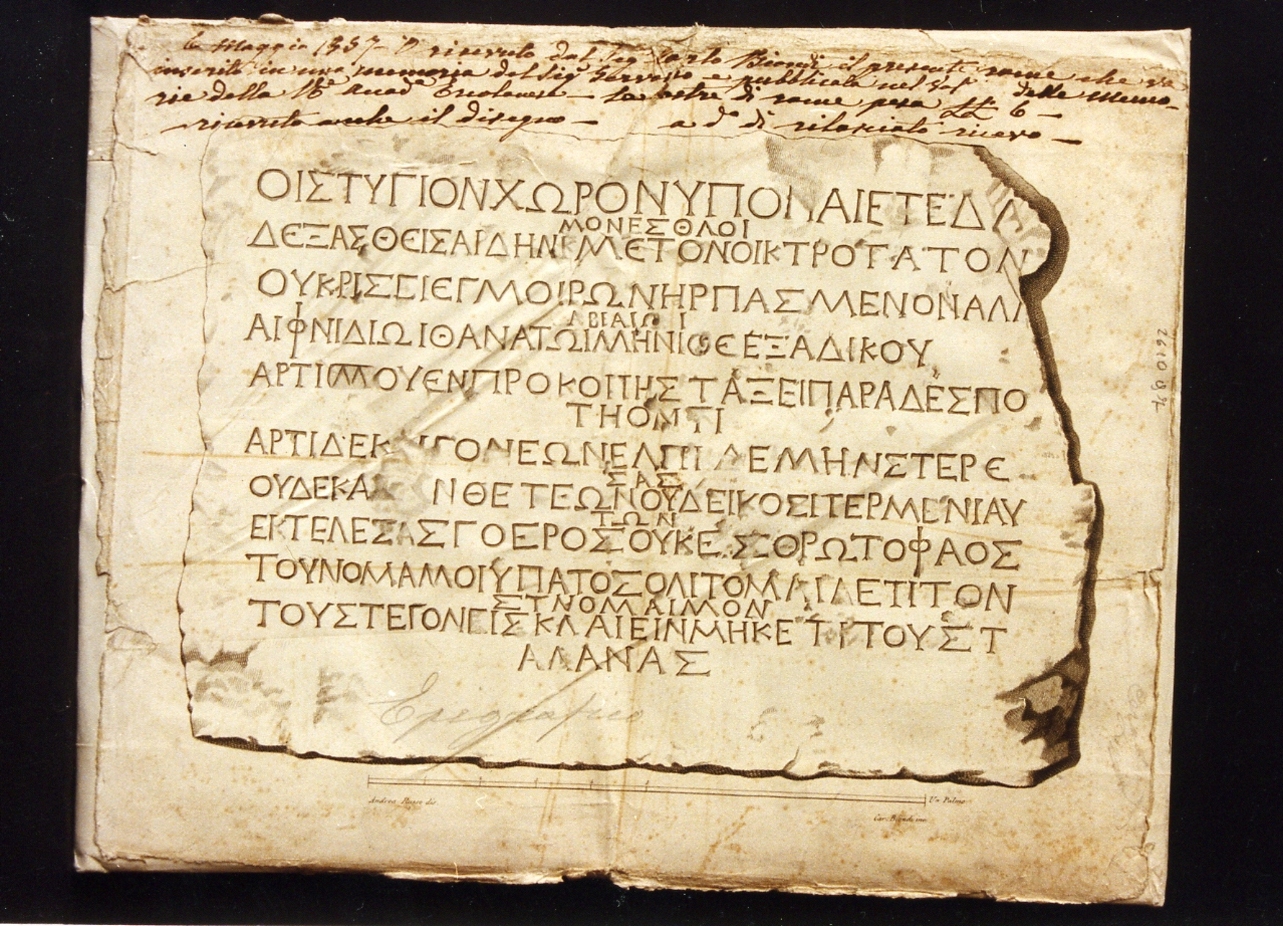 6 Maggio 1857 ricevuto dal Sig. Carlo Biondi il presente rame che va
inserito in una memoria del Sig. e pubblicata nel Vol. delle Memo-
rie della Rl. Accad. Ercolanese – La lastra di rame pesa 6 –
– ricevuto anche il disegno – a do. dì rilasciato ricevo –
ΟΙΣΤΥΓΙΟΝΧΩΡΟΝΥΠΟΝΑΙΕΤΕΔΑ
ΜΟΝΕΣΘΛΟΙ
ΔΕΞΑΣΘΕΙΣΑΙΔΗΝΚΜΕΤΟΝΟΙΚΤΡΟΤΑΤΟΝ
ΟΥΚΡΙΣΓΙΕΓΜΟΙΡΩΝΗΡΠΑΣΜΕΝΟΝΑΛΛ
ΑΒΙΑΙΩΙ
ΑΙφΝΙΔΙΩΙΘΑΝΑΤΩΙΜΗΝΙΘΕΕΞΑΔΙΚΟΥ
ΑΡΤΙΜΟΥΕΝΠΡΟΚΟΠΗΣΤΑΞΕΙΠΑΡΑΔΕΣΠΟ
ΤΗΟΜΤΙ
ΑΡΤΙΔΕΚ ΓΟΝΕΩΝΕΛΠΙΔΕΜΗΝΣΤΕΡΕ
ΣΑΣ
ΟΥΔΕΚΑ ΝΘΕΤΕΩΝΟΥΔΕΙΚΟΣΙΤΕΡΜΕΝΙΑΥ
ΤΩΝ
ΕΚΤΕΛΕΣΑΣΓΟΕΡΟΣΟΥΚΕΣΣΘΡΩΤΟφΑΟΣ
ΤΟΥΝΟΜΑΜΟΙΥΠΑΤΟΣΟΛΙΤΟΜΑΙΔΕΤΙΤΟΝ
ΣΤΝΟΜΑΙΜΟΝ
ΤΟΥΣΤΕΓΟΝΕΙΣΚΛΑΙΕΙΝΜΗΚΕΤΙΤΟΥΣΤ
ΑΛΑΝΑΣ
Epegrafico
Andrea dis.
Un Palmo
Car. Biondi inc.
2610 97